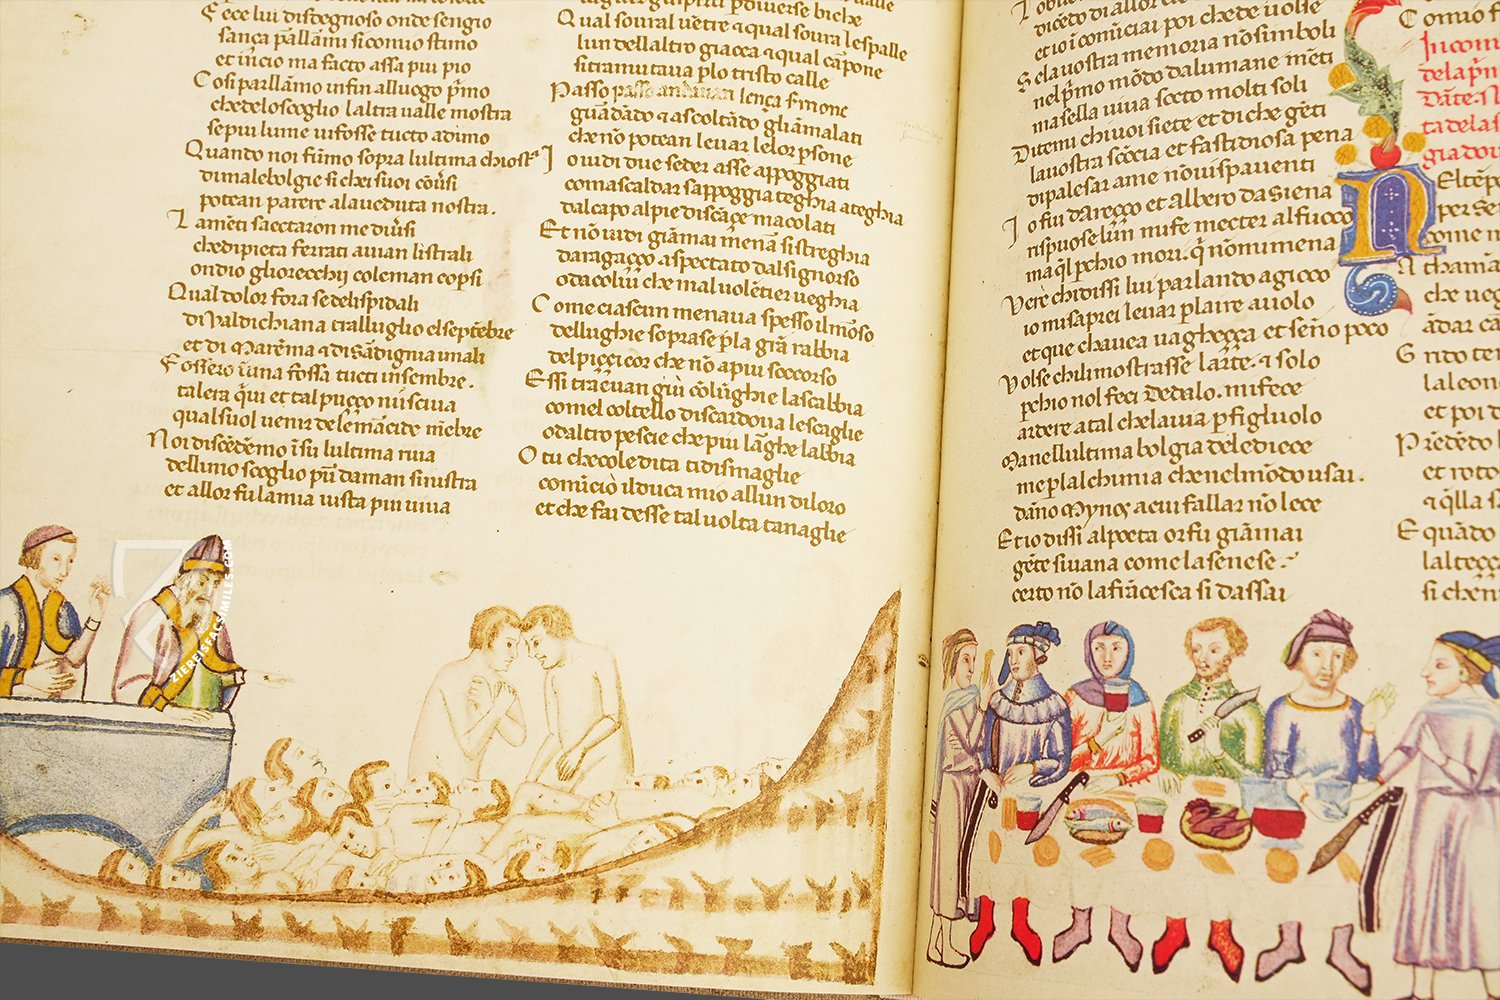 Ecce lui disdegnoso onde sengio
sança pallami si comio stimo
et incio ma facto assa piu pio
Cosi parllamo infin alluogo pmo
che delo scoglio laltra ualle mostra
se piu lume uifosse tucto adimo
Quando noi fumo sopra lultima chiost
di malebolgie si chei suoi cousi
potean parere ala ueduta nostra.
Lameti saettaron me diusi
che di pieta ferrati auian li strali
ondio gliorecchij coleman copsi
Qual dolor fora se deli spidali
di Valdichiana tralluglio el septebre
et di Marema et di Sadigna i mali
Fossero i una fossa tucti insembre.
tal era qui et tal puçço nusciua
qual suol uenir dele macide mebre
Noi discedemo i su lultima riua
del lungo scoglio pur da man sinistra
et allor fu la mia uista piu uiua
Qual soural uetre et qual soura lespalle
lun dellaltro giacea et qual capone
si tramutaua plo tristo calle
Passo passo andauan sença smone
guadado et ascoltado gliamalati
che no potean leuar le lor psone
Io uidi due seder asse appoggiati
com a scaldar sappoggia teghia a teghia
dal capo al pie di scaçe macolati
Et no uidi giamai menar streghia
da ragaçço aspectato dal signorso
o da colui che mal uoletier ueghia
Come ciascun menaua spesso il morso
dellughie sopra se pla gra rabbia
del piççicor che no a piu soccorso
Essi traeuan giu colughie la scabbia
comel coltello di scardoua le scaglie
o daltro pescie che piu laghe labbia
O tu che cole dita ti dismaglie
comicio il duca mio allun di loro
et che fai desse tal uolta tanaglie
diceto di allor
et io icomiciai poi che de uolse
Se la uostra memoria no simboli
nel pmo modo dalumane meti
ma sella uiua socto molti soli
Ditemi chi uoi siete et di che geti
la uostra scocia et fastidiosa pena
di palesar a me no ui spauenti
Io fiu dareçço et albero da siena
rispuose lun mi fe mecter al fuoco
ma ql pchio mori. q no mi mena
Vere chi dissi lui parlando a gioco
io mi saprei leuar plaire a uolo
et que chauea uagheçça et seno poco
Volse chi li mostrasse larte. et solo
pchio nol feci Dedalo. mi fece
ardere a tal che laua p figluolo
Ma nellultima bolgia dele diece
me p lalchimia che nel modo usai.
dano Mynos a cui fallar no lece
Et io dissi al poeta or fu giamai
gete si uana come la senese.
certo no la fracesca si dassai
Como f
In com
dela p
Date
ta delas
gia dou
N
El tep
per se
come n
A thama
che ueg
adar ca
Grido te
la leon
et poi d
Prededo
et roto
et qlla s
E quado
lalteçç
si chen
ZIEREISFACSIMILES.COM